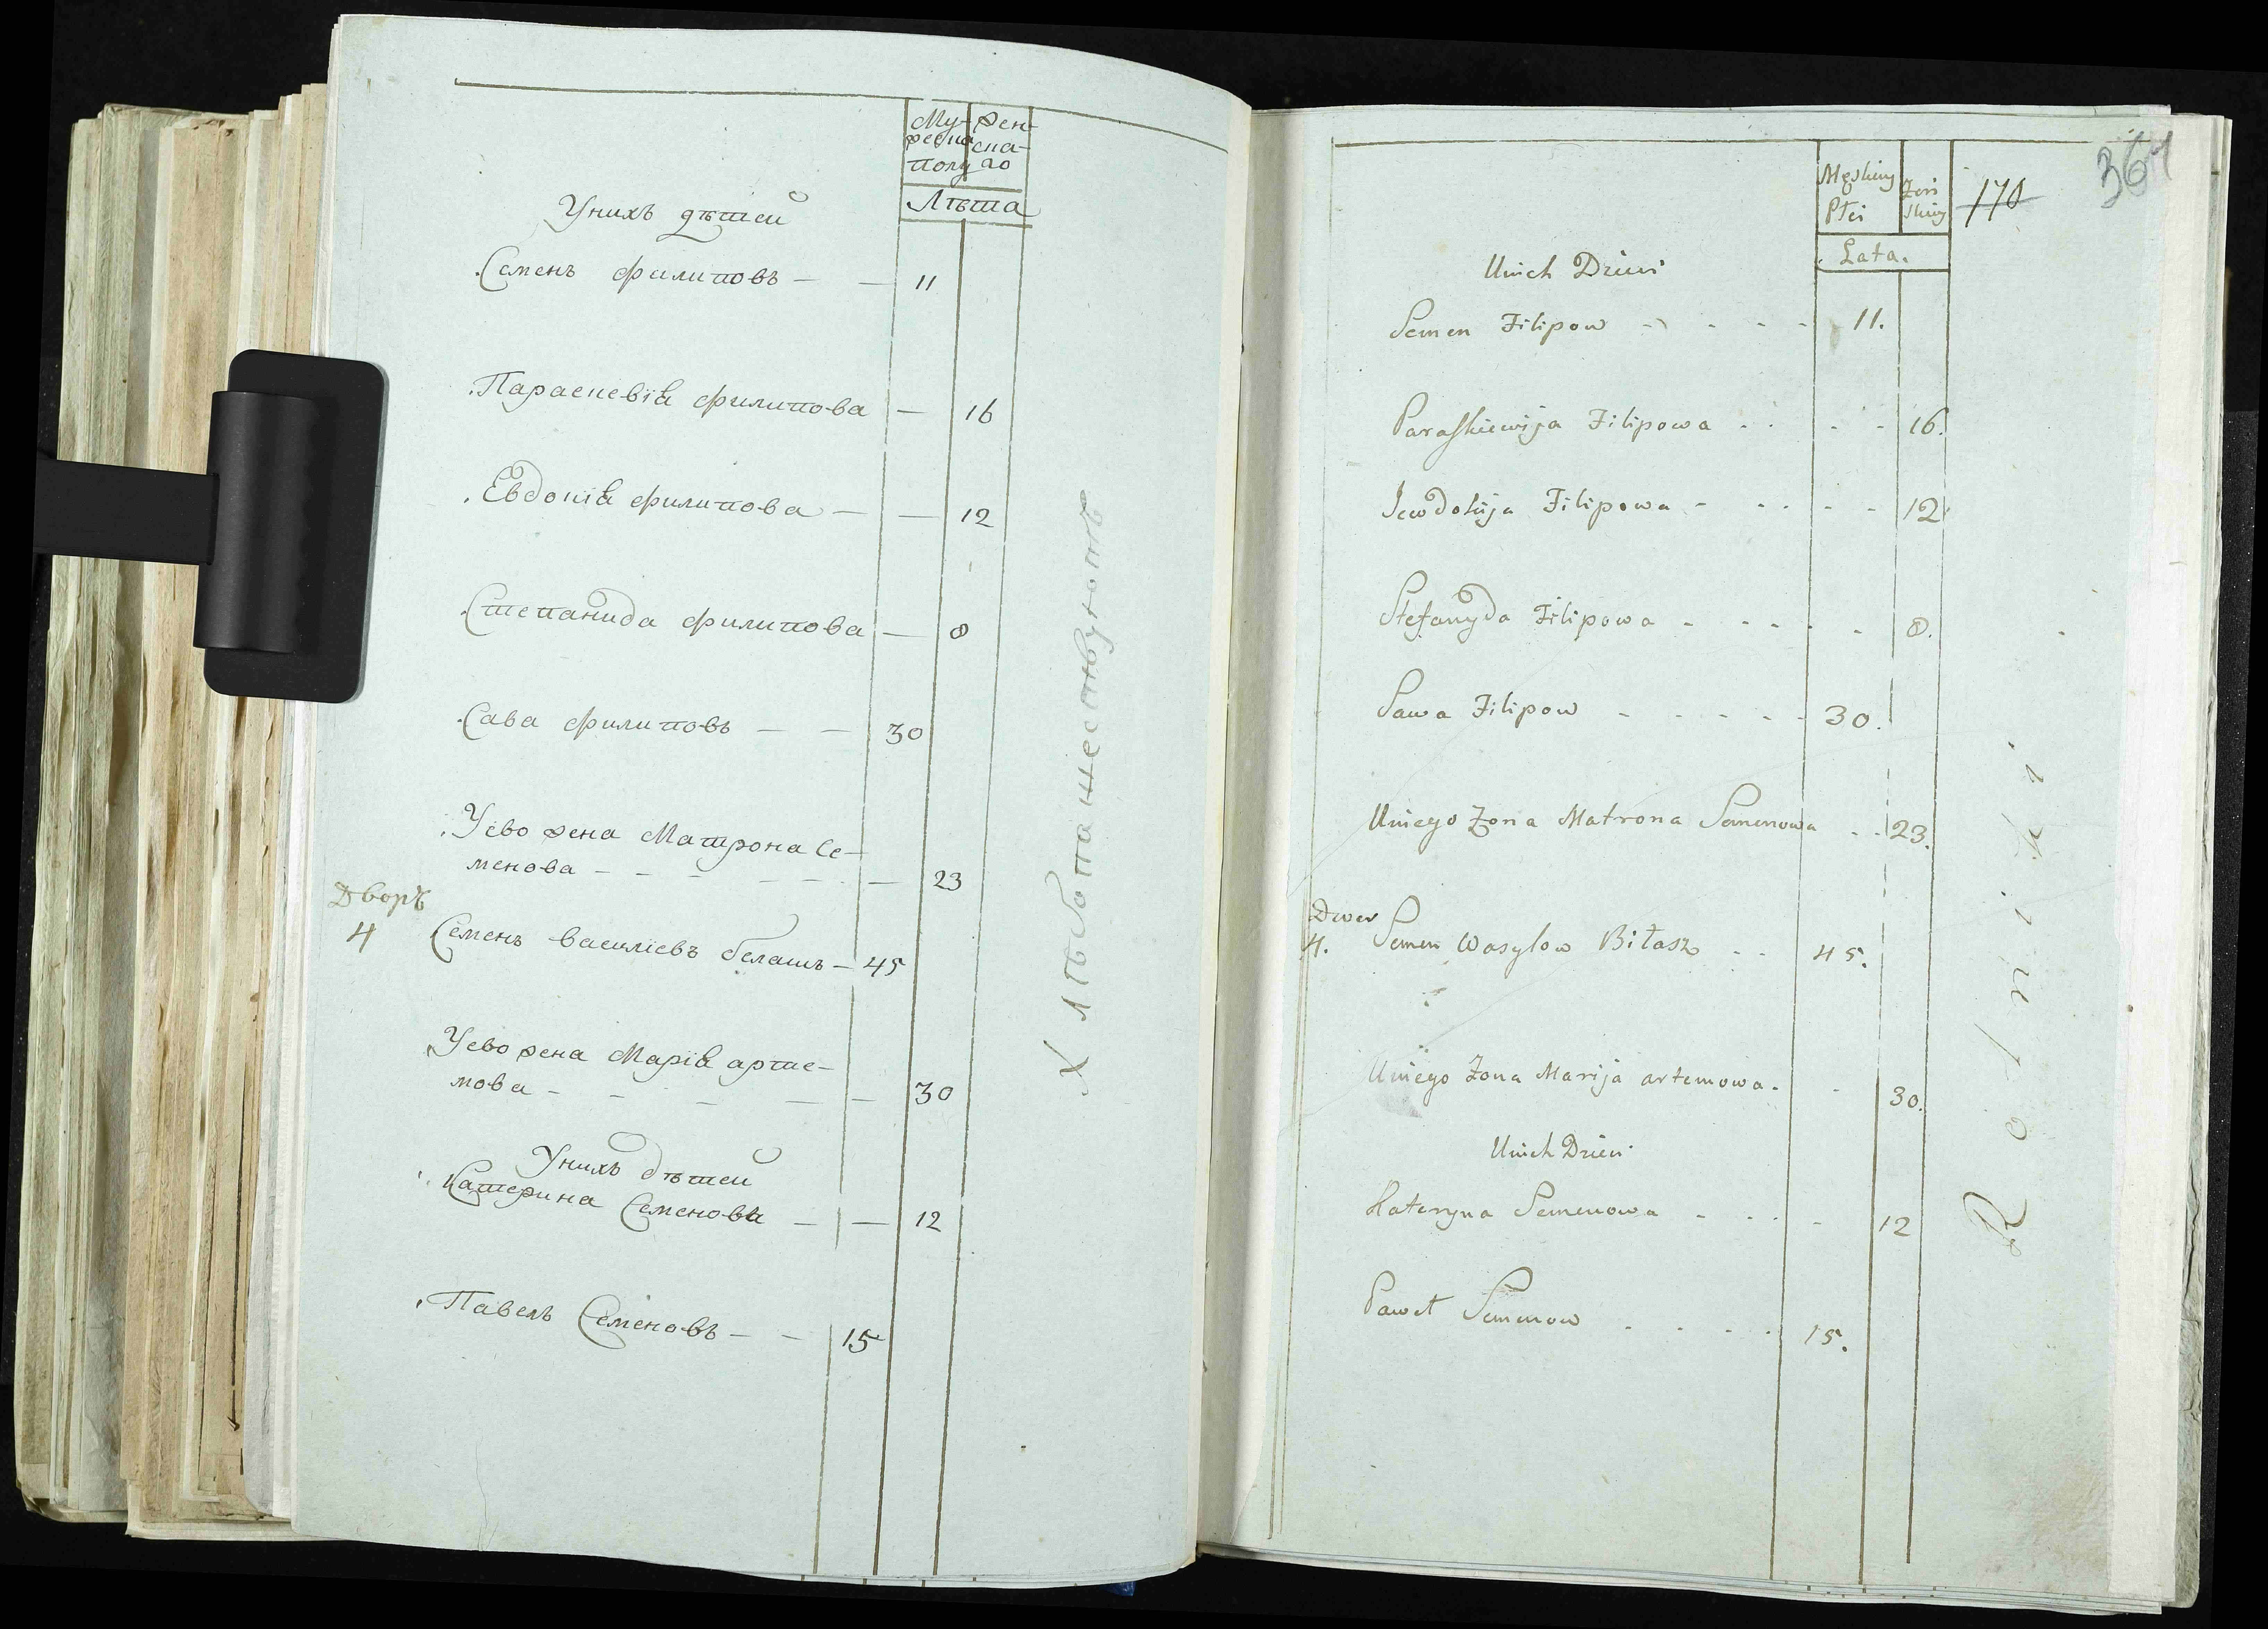 Му- жен-
жеска ска-
полу го
Лѣта
Унихъ дѣтей
Семенъ филиповъ — — 11
Параскевія филипова — 16
Евдокія филипова — — 12
Степанида филипова — 8
Сава филиповъ — — 30
Уево жена Матрона Се-
менова - - - - - — 23
Дворъ
4 Семенъ василіевъ белашъ — 45
Уево жена Марія арте-
мова - - - — — 30
Унихъ дѣтей
Катерина Семенова — — 12
Павелъ Семеновъ — — 15
Хлѣбопашествуютъ
364
170
Męskiey Żeń
Płci skiey
Lata.
Unich Dzieci
Semen Filipow - - - - 11.
Paraskiewija Filipowa - - - - 16.
Jewdokija Filipowa - - - - - 12.
Stefanyda Filipowa - - - - - 8.
Sawa Filipow - - - - - 30.
Uniego Żona Matrona Semenowa - - 23.
Dwor
4. Semen Wasylow Biłasz - - 45.
Uniego Żona Marija artemowa - - 30.
Unich Dzieci
Kateryna Semenowa - - - - 12
Paweł Semenow - - - - 15.
Rolnicy